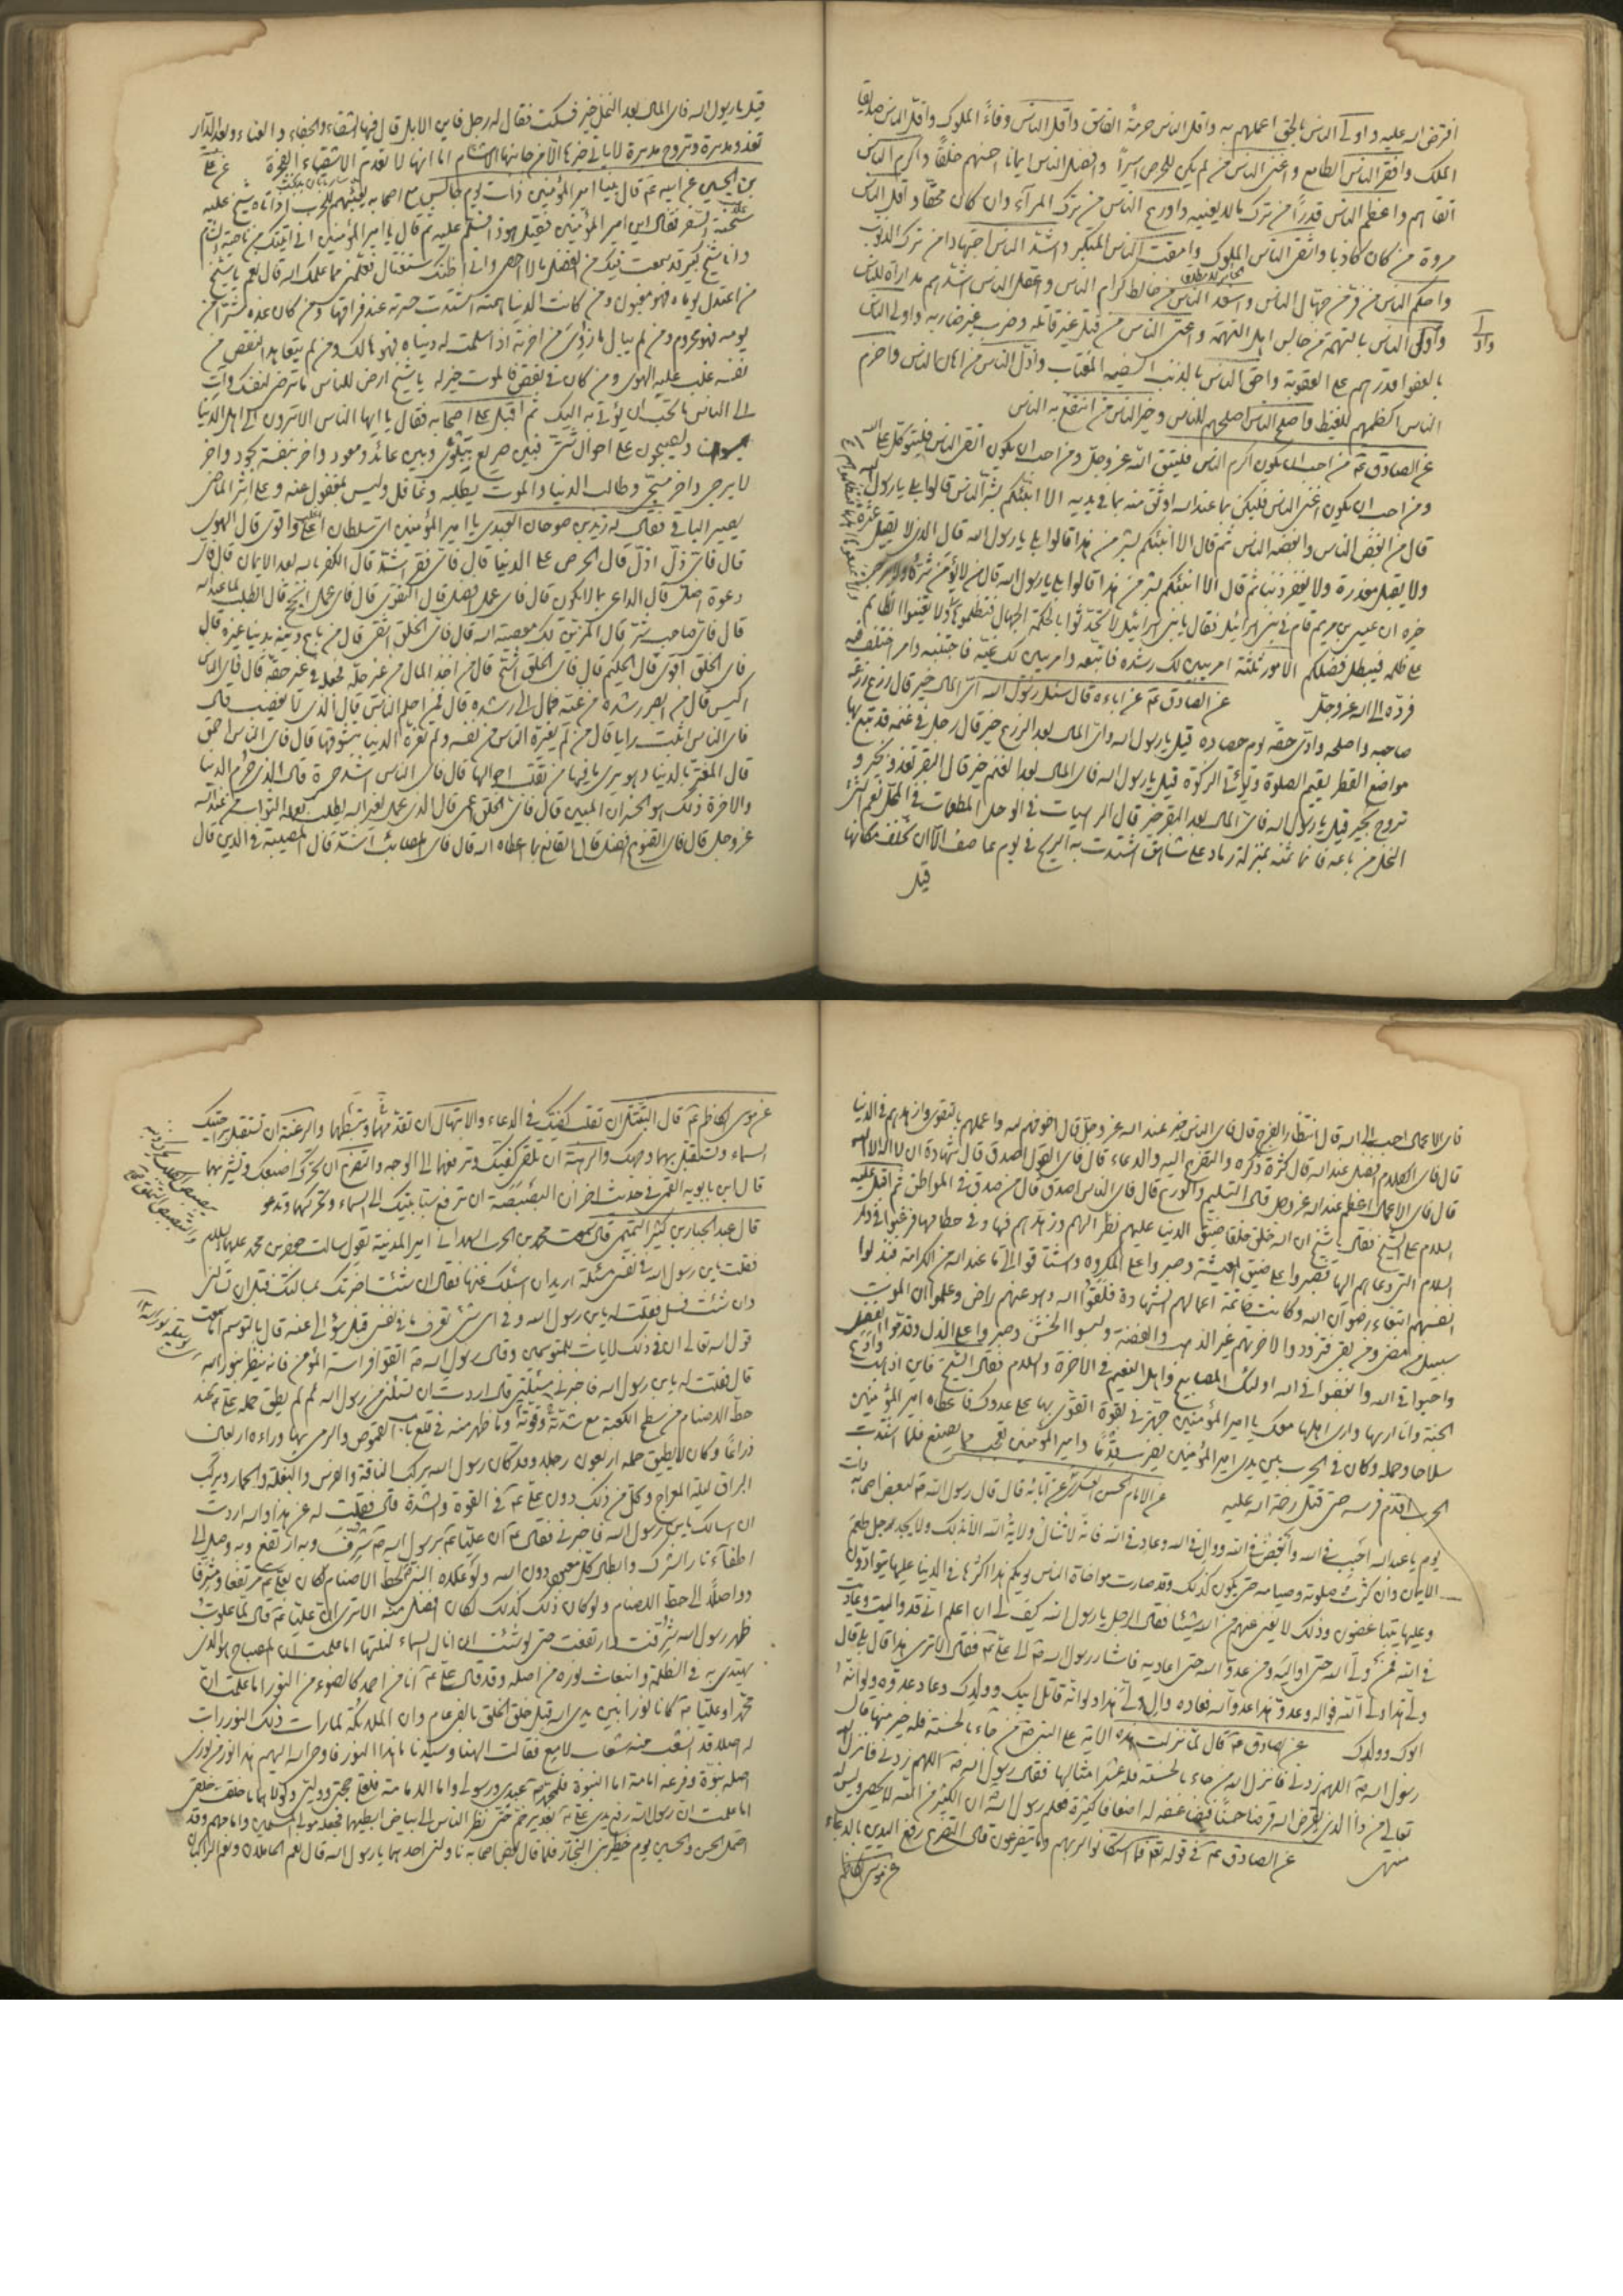 افترض الله عليه واولى الناس بالحق اعملهم به واقل الناس حرمة الفاسق واقل الناس وفاءً الملوك واقل الناس صديقا
الملك وافقر الناس الطامع واغنى الناس من لم يكن للحرص اسيراً وافضل الناس ايمانا احسنهم خلقاً واكرم الناس
اتقاهم واعظم الناس قدراً من ترك ما لا يعنيه واورع الناس من ترك المرآء وان كان محقاً واقل الناس
مروة من كان كاذبا واشقى الناس الملوك وامقت الناس المتكبر واشد الناس اجتهادا من ترك الذنوب
واحكم الناس من فر من جهال الناس واسعد الناس من خالط كرام الناس واعقل الناس اشدهم مداراة للناس
واولى الناس بالتهمة من جالس اهل التهمة واعتى الناس من قتل غير قاتله وضرب غير ضاربه واولى الناس
بالعفو اقدرهم على العقوبة واحق الناس بالذنب السفيه المغتاب واذل الناس من اهان الناس واحزم
الناس اكظمهم للغيظ واصلح الناس اصلحهم للناس وخير الناس من انتفع به الناس
عن الصادق عم من احب ان يكون اكرم الناس فليتق الله عز وجل ومن احب ان يكون اتقى الناس فليتوكل على الله
ومن احب ان يكون اغنى الناس فليكن بما عند الله اوثق منه بما في يديه الا انبئكم بشر الناس قالوا بلى يا رسول الله
قال من ابغض الناس وابغضه الناس ثم قال الا انبئكم بشر من هذا قالوا بلى يا رسول الله قال الذي لا يقيل عثرة
ولا يقبل معذرة ولا يغفر ذنبا ثم قال الا انبئكم بشر من هذا قالوا بلى يا رسول الله قال من لا يؤمن شره ولا يرجى
خيره ان عيسى بن مريم قام في بني اسرائيل فقال يا بني اسرائيل لا تحدثوا بالحكمة الجهال فتظلموها ولا تعينوا الظالم
على ظلمه فيبطل فضلكم الامور ثلثة امر تبين لك رشده فاتبعه وامر تبين لك غيه فاجتنبه وامر اختلف فيه
فرده الى الله عز وجل عن الصادق عم عن اباءه قال سئل رسول الله اى المال خير قال زرع زرعه
صاحبه واصلحه وادى حقه يوم حصاده قيل يا رسول الله واى المال بعد الزرع خير قال رجل في غنمه قد تبع بها
مواضع القطر يقيم الصلوة ويؤتي الزكوة قيل يا رسول الله فاى المال بعد الغنم خير قال البقر تغدو بخير و
تروح بخير قيل يا رسول الله فاى المال بعد البقر خير قال الراسيات في الوحل المطعمات في المحل نعم الشئ
النخل من باعه فانما ثمنه بمنزلة رماد على شاهق اشتدت به الريح في يوم عاصف الا ان يخلف مكانها
قيل
قيل يا رسول الله فاى المال بعد النخل خير فسكت فقال له رجل فاين الابل قال فيها الشقاء والجفاء والعناء وبعد الدار
تغدو مدبرة وتروح مدبرة لا ياتي خيرها الا من جانبها الاشام اما انها لا تعدم الاشقياء الفجرة عن على
بن الحسين عن ابيه عم قال بينا امير المؤمنين ذات يوم جالس مع اصحابه يعبئهم للحرب اذ اتاه شيخ عليه
شحبة السفر فقال اين امير المؤمنين فقيل هوذا فسلم عليه ثم قال يا امير المؤمنين اني اتيتك من ناحية الشام
وانا شيخ كبير قد سمعت فيك من الفضل ما لا احصى واني اظنك ستغتال فعلمني مما علمك الله قال نعم يا شيخ
من اعتدل يوماه فهو مغبون ومن كانت الدنيا همته اشتدت حسرته عند فراقها ومن كان غده شر من
يومه فهو محروم ومن لم يبال بما رزئ من اخرته اذا سلمت له دنياه فهو هالك ومن لم يتعاهد النقص من
نفسه غلب عليه الهوى ومن كان في نقص فالموت خير له يا شيخ ارض للناس ما ترضى لنفسك وآت
الى الناس ما تحب ان يؤتى به اليك ثم اقبل على اصحابه فقال يا ايها الناس الا ترون الى اهل الدنيا
يمسون ويصبحون على احوال شتى فبين صريع يتلوى وبين عائد ومعود واخر بنفسه يجود واخر
لا يرجى واخر مسجى وطالب الدنيا والموت يطلبه وغافل وليس بمغفول عنه وعلى اثر الماضي
يصير الباقي فقال له زيد بن صوحان العبدي يا امير المؤمنين اى سلطان اغلب واقوى قال الهوى
قال فاى ذل اذل قال الحرص على الدنيا قال فاى فقر اشد قال الكفر بالله بعد الايمان قال فاى
دعوة اضل قال الداعي بما لا يكون قال فاى عمل افضل قال التقوى قال فاى عمل انجح قال طلب ما عند الله
قال فاى صاحب شر قال المزين لك معصية الله قال فاى الخلق اشقى قال من باع دينه بدنيا غيره قال
فاى الخلق اقوى قال الحليم قال فاى الخلق اشح قال من اخذ المال من غير حله فجعله في غير حقه قال فاى الناس
اكيس قال من ابصر رشده من غيه فمال الى رشده قال فمن احلم الناس قال الذي لا يغضب قال
فاى الناس اثبت رايا قال من لم يغره الناس من نفسه ولم تغره الدنيا بتشوفها قال فاى الناس احمق
قال المغتر بالدنيا وهو يرى ما فيها من تقلب احوالها قال فاى الناس اشد حسرة قال الذي حرم الدنيا
والاخرة ذلك هو الخسران المبين قال فاى الخلق اعمى قال الذي عمل لغير الله يطلب بعمله الثواب من عند الله
عز وجل قال فاى القنوع افضل قال القانع بما اعطاه الله قال فاى المصائب اشد قال المصيبة في الدين قال
فاى الاعمال احب الى الله قال انتظار الفرج قال فاى الناس خير عند الله عز وجل قال اخوفهم لله واعملهم بالتقوى وازهدهم في الدنيا
قال فاى الكلام افضل عند الله قال كثرة ذكره والتضرع اليه والدعاء قال فاى القول اصدق قال شهادة ان لا اله الا الله
قال فاى الاعمال اعظم عند الله عز وجل قال التسليم والورع قال فاى الناس اصدق قال من صدق في المواطن ثم اقبل عليه
السلام على الشيخ فقال يا شيخ ان الله خلق خلقا ضيق الدنيا عليهم نظرا لهم وزهدهم فيها وفي حطامها فرغبوا في دار
السلام التي دعاهم اليها فصبروا على ضيق المعيشة وصبروا على المكروه واشتاقوا الى ما عند الله من الكرامة فبذلوا
انفسهم ابتغاء رضوان الله وكانت خاتمة اعمالهم الشهادة فلقوا الله وهو عنهم راض وعلموا ان الموت
سبيل من مضى ومن بقى فتزودوا لاخرتهم غير الذهب والفضة ولبسوا الخشن وصبروا على الذل وقدموا الفضل
واحبوا في الله وابغضوا في الله اولئك المصابيح واهل النعيم في الاخرة والسلام فقال الشيخ فاين اذهب وادع
الجنة وانا اراها وارى اهلها معك يا امير المؤمنين جهزني بقوة اتقوى بها على عدوك فاعطاه امير المؤمنين
سلاحا وحمله وكان في الحرب بين يدى امير المؤمنين يضرب قدما وامير المؤمنين يعجب مما يصنع فلما اشتدت
الحرب اقدم فرسه حتى قتل رحمة الله عليه عن الامام الحسن العسكري عن آبائه قال قال رسول الله لبعض اصحابه ذات
يوم يا عبد الله احبب في الله وابغض في الله ووال في الله وعاد في الله فانه لا تنال ولاية الله الا بذلك ولا يجد رجل طعم
الايمان وان كثرت صلوته وصيامه حتى يكون كذلك وقد صارت مواخاة الناس يومكم هذا اكثرها في الدنيا عليها يتوادون
وعليها يتباغضون وذلك لا يغنى عنهم من الله شيئا فقال الرجل يا رسول الله كيف لى ان اعلم اني قد واليت وعاديت
في الله فمن ولى الله حتى اواليه ومن عدو الله حتى اعاديه فاشار رسول الله الى على عم فقال الا ترى هذا قال بلى قال
ولى هذا ولى الله فواله وعدو هذا عدو الله فعاده وال ولى هذا ولو انه قاتل ابيك وولدك وعاد عدوه ولو انه
ابوك وولدك عن الصادق عم قال لما نزلت هذه الاية على النبي من جاء بالحسنة فله خير منها قال
رسول الله اللهم زدني فانزل الله من جاء بالحسنة فله عشر امثالها فقال رسول الله اللهم زدني فانزل الله
تعالى من ذا الذي يقرض الله قرضا حسنا فيضاعفه له اضعافا كثيرة فعلم رسول الله ان الكثير من الله لا يحصى وليس له
منتهى عن الصادق عم في قوله تع فما استكانوا لربهم وما يتضرعون قال التضرع رفع اليدين بالدعاء
عن موسى الكاظم
عن موسى الكاظم عم قال التبتل ان تقلب كفيك في الدعاء والابتهال ان تقدمهما وتبسطهما والرغبة ان تستقبل براحتيك
السماء وتستقبل بهما وجهك والرهبة ان تلقى كفيك وترفعهما الى الوجه والتضرع ان تحرك اصبعيك وتشير بهما
قال ابن بابويه القمى في حديث اخر ان البصبصة ان ترفع سبابتيك الى السماء وتحركهما وتدعو
قال عبد الجبار بن كثير التميمي قال سمعت محمد بن الحرب الهلالي امير المدينة يقول سالت جعفر بن محمد عليهما السلام
فقلت يابن رسول الله في نفسي مسئلة اريد ان اسئلك عنها فقال ان شئت اخبرتك بمسالتك قبل ان تسالني
وان شئت فسل فقلت له يابن رسول الله وفى اى شئ تعرف ما في نفسي قبل سؤالي عنه قال بالتوسم اما سمعت
قول الله تعالى ان في ذلك لايات للمتوسمين وقال رسول الله اتقوا فراسة المؤمن فانه ينظر بنور الله
قال فقلت له يابن رسول الله فاخبرني بمسئلتي قال اردت ان تسئلني عن رسول الله لم لم يطق حمله على عم عند
حط الاصنام من سطح الكعبة مع شدته وقوته وما ظهر منه في قلع باب القموص والرمي بها وراءه اربعين
ذراعا وكان لا يطيق حمله اربعون رجلا وقد كان رسول الله يركب الناقة والفرس والبغلة والحمار وركب
البراق ليلة المعراج وكل من ذلك دون على عم في القوة والشدة قال فقلت له عن هذا والله اردت
ان اسالك يابن رسول الله فاخبرني فقال ان عليا عم برسول الله شرف وبه ارتفع وبه وصل الى
اطفاء نار الشرك وابطال كل معبود دون الله ولو علاه النبي لحط الاصنام لكان بعلى عم مرتفعا ومشرفا
وواصلا الى حط الاصنام ولو كان ذلك كذلك لكان افضل منه الا ترى ان عليا عم قال لما علوت
ظهر رسول الله شرفت وارتفعت حتى لو شئت ان انال السماء لنلتها اما علمت ان المصباح هو الذي
يهتدى به في الظلمة وانبعاث نوره من اصله وقد قال على عم انا من احمد كالضوء من النور اما علمت ان
محمدا وعليا كانا نورا بين يدى الله قبل خلق الخلق بالفى عام وان الملائكة لما رات ذلك النور رات
له اصلا قد انشعب منه شعاع لامع فقالت الهنا وسيدنا ما هذا النور فاوحى الله اليهم هذا نور من نوري
اصله نبوة وفرعه امامة اما النبوة فلمحمد عبدي ورسولي واما الامامة فلعلى حجتي ووليي ولولاهما ما خلقت خلقي
اما علمت ان رسول الله رفع يدى على بغدير خم حتى نظر الناس الى بياض ابطيهما فجعله مولى المسلمين وامامهم وقد
احتمل الحسن والحسين يوم حظيرة بني النجار فلما قال بعض اصحابه ناولني احدهما يا رسول الله قال نعم الحاملان ونعم الراكبان